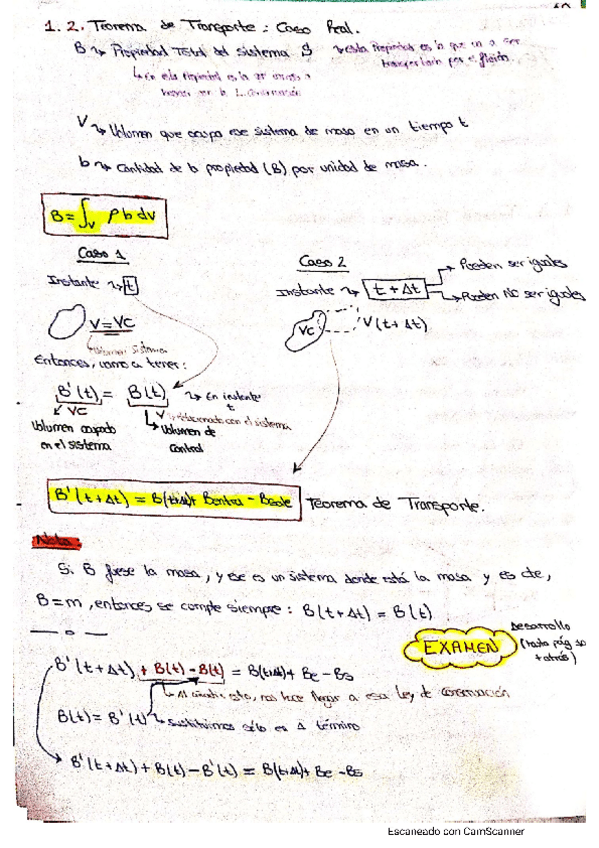 1.2. Teorema de Transporte: Caso Real.
B ↝ Propiedad Total del sistema S ↝ esta Propiedad es la que va a ser
transportada por el fluido.
↳ en esta Propiedad es la que vamos a
V ↝ Volumen que ocupa ese sistema de masa en un tiempo t
b ↝ Cantidad de la propiedad (B) por unidad de masa.
B = ∫_V ρ b dv
Caso 1
Caso 2
Instante ↝ t
Instante ↝ t + Δt
Pueden ser iguales
Pueden NO ser iguales
V = VC
Volumen sistema
VC
V(t + Δt)
Entonces, vamos a tener:
B'(t) = B(t) ↝ En instante t
VC
V ↝ relacionado con el sistema
Volumen ocupado
en el sistema
↳ Volumen de
control
B'(t + Δt) = B(t+Δt) + Bentra - Bsale
Teorema de Transporte.
Nota:
Si B fuese la masa, y ese es un sistema donde está la masa y es cte,
B = m, entonces se cumple siempre: B(t + Δt) = B(t)
EXAMEN
Desarrollo
(hasta pág 10
+ atrás)
B'(t + Δt) + B(t) - B(t) = B(t+Δt) + Be - Bs
↳ Al añadir esto, nos hace llegar a esa Ley de Conservación
B(t) = B'(t) ↳ Sustituimos sólo en 1 término
B'(t + Δt) + B(t) - B'(t) = B(t+Δt) + Be - Bs
Escaneado con CamScanner